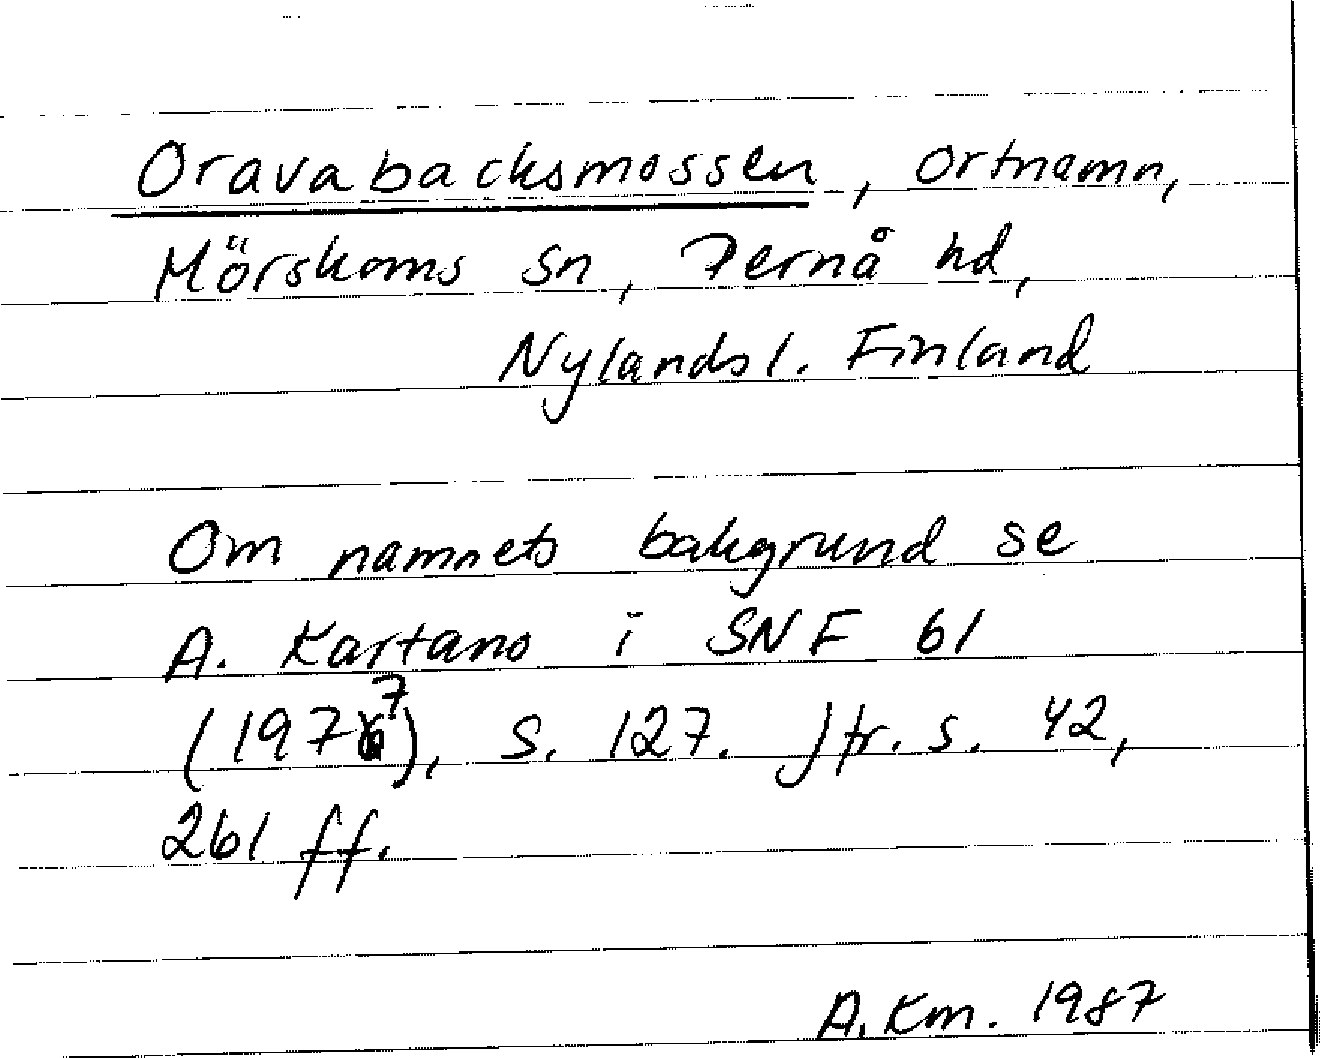 Oravabacksmossen, ortnamn,
Mörskoms sn, Pernå hd,
Nylandsl. Finland
Om namnets bakgrund se
A. Kartano i SNF 61
(1977), s. 127. Jfr. s. 42,
261 ff.
A. Km. 1987